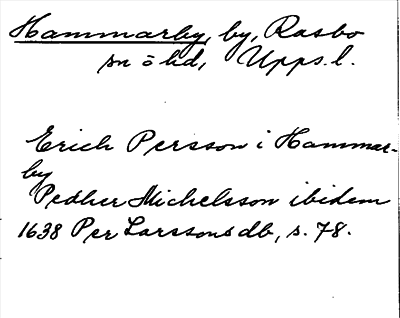 Hammarby, by, Rasbo
sn o hd, Upps. l.
Erich Persson i Hammar-
by
Pedher Michelsson ibidem
1638 Per Larssons db, s. 78.